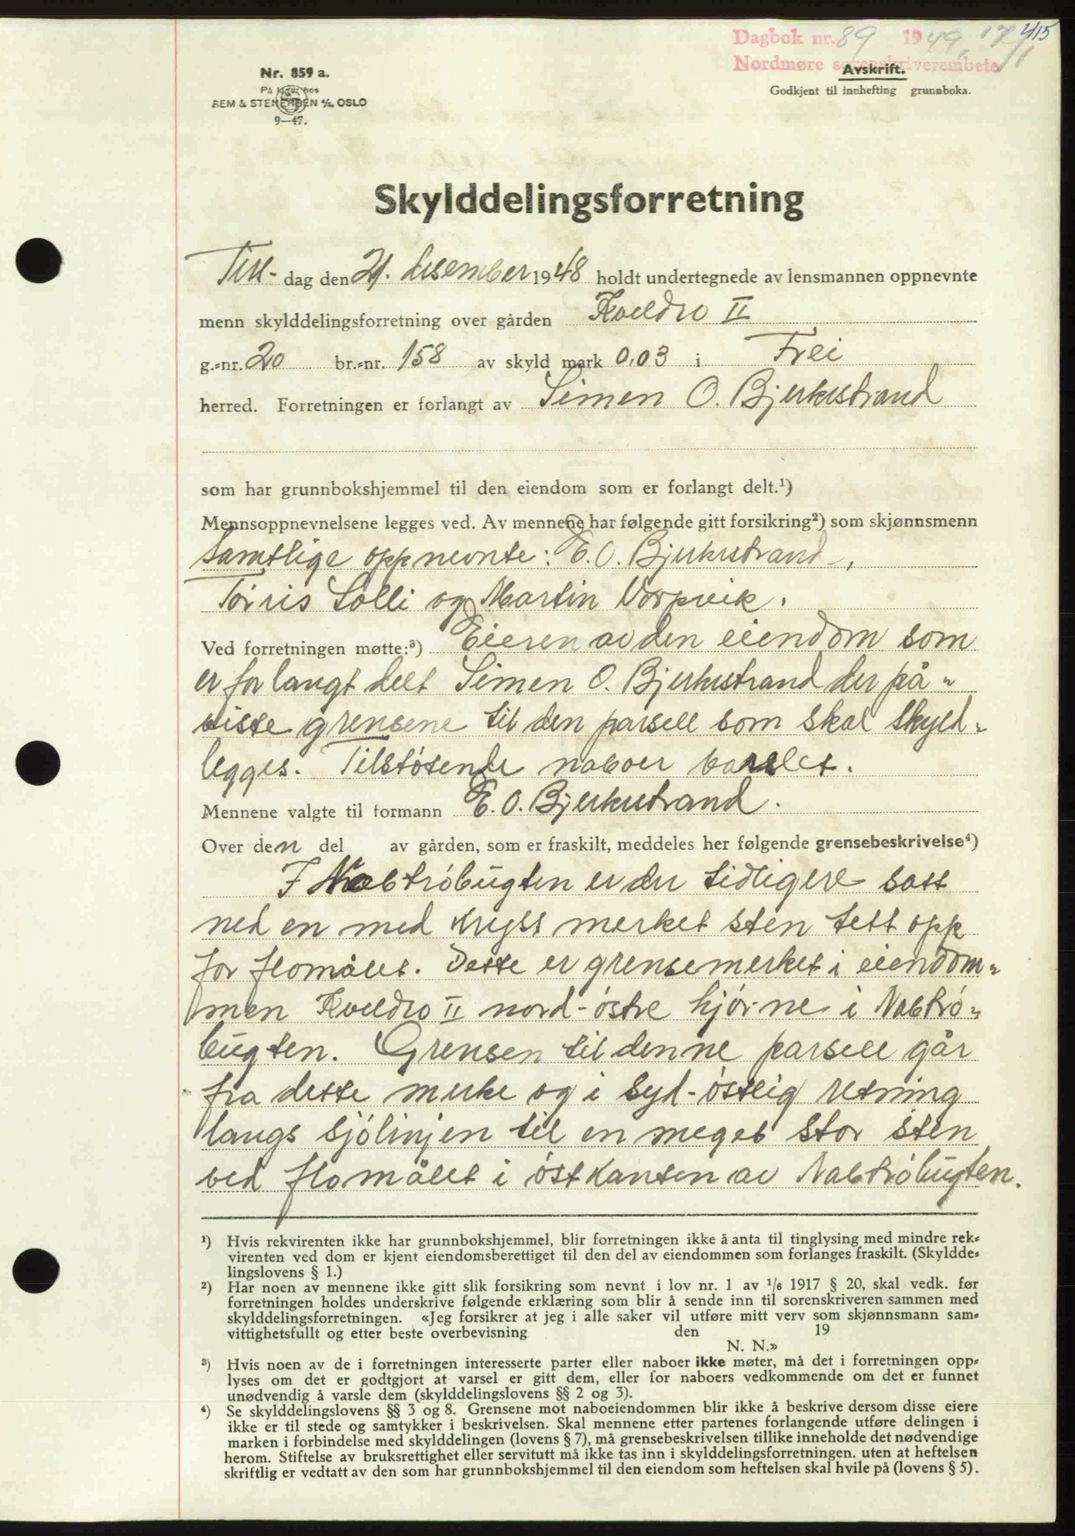 415
Dagbok nr. 89 1949, 17/1
Nordmøre sorenskriverembete
Avskrift.
Godkjent til innhefting grunnboka.
Nr. 859 a.
På lager hos
SEM & STENERSEN A/S OSLO
9—47.
Skylddelingsforretning
Tirs- dag den 21. desember 1948 holdt undertegnede av lensmannen oppnevnte
menn skylddelingsforretning over gården Kveldro II
g.-nr. 20 br.-nr. 158 av skyld mark 0,03 i Frei
herred. Forretningen er forlangt av Simen O. Bjerkestrand
som har grunnbokshjemmel til den eiendom som er forlangt delt.¹)
Mennsoppnevnelsene legges ved. Av mennene har følgende gitt forsikring²) som skjønnsmenn
samtlige oppnevnte: E. O. Bjerkestrand,
Tørris Solli og Martin Vorpvik.
Ved forretningen møtte:³) Eieren av den eiendom som
er forlangt delt Simen O. Bjerkestrand der på-
viste grensene til den parsell som skal skyld-
legges. Tilstøtende naboer varslet.
Mennene valgte til formann E. O. Bjerkestrand.
Over den del av gården, som er fraskilt, meddeles her følgende grensebeskrivelse⁴)
I Nabtröbugten er der tidligere satt
ned en med kryss merket sten tett opp
for flomålet. Dette er grensemerket i eiendom-
men Kveldro II nord-östre hjörne i Nabtrö-
bugten. Grensen til denne parsell går
fra dette merke og i syd-östlig retning
langs sjölinjen til en meget stor sten
ved flomålet i östkanten av Nabtröbugten.
¹) Hvis rekvirenten ikke har grunnbokshjemmel, blir forretningen ikke å anta til tinglysing med mindre rek-
virenten ved dom er kjent eiendomsberettiget til den del av eiendommen som forlanges fraskilt. (Skyldde-
lingslovens § 1.)
²) Har noen av mennene ikke gitt slik forsikring som nevnt i lov nr. 1 av 1/6 1917 § 20, skal vedk. før
forretningen holdes underskrive følgende erklæring som blir å sende inn til sorenskriveren sammen med
skylddelingsforretningen. «Jeg forsikrer at jeg i alle saker vil utføre mitt verv som skjønnsmann sam-
vittighetsfullt og etter beste overbevisning den 19
N. N.»
³) Hvis noen av de i forretningen interesserte parter eller naboer ikke møter, må det i forretningen opp-
lyses om det er godtgjort at varsel er gitt dem, eller for naboers vedkommende om det er funnet
unødvendig å varsle dem (skylddelingslovens §§ 2 og 3).
⁴) Se skylddelingslovens §§ 3 og 8. Grensene mot naboeiendommen blir ikke å beskrive dersom disse eiere
ikke er til stede og samtykker i beskrivelsen. Skal mennene etter partenes forlangende utføre delingen i
marken i forbindelse med skylddelingen (lovens § 7), må grensebeskrivelsen tillike inneholde det nødvendige
herom. Stiftelse av bruksrettighet eller servitutt må ikke tas inn i skylddelingsforretningen, uten at heftelsen
skriftlig er vedtatt av den som har grunnbokshjemmel til den eiendom som heftelsen skal hvile på (lovens § 5).